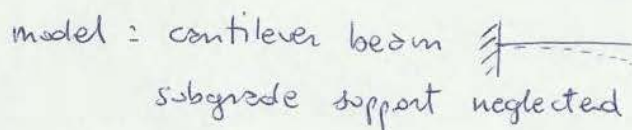 model : cantilever beam
subgrade support neglected